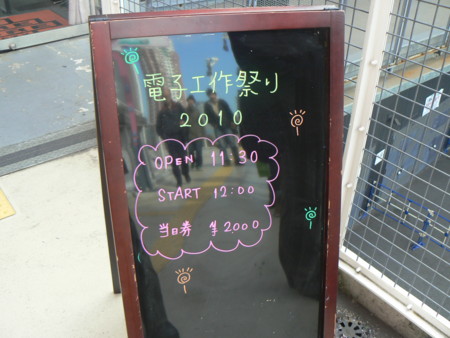 電子工作祭り
2010
OPEN 11:30
START 12:00
当日券 ¥2,000